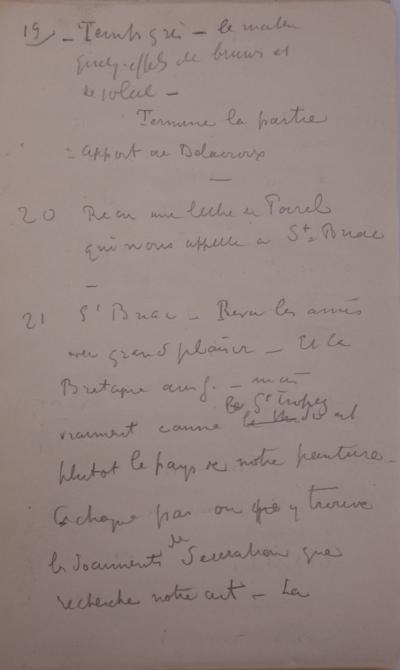 19 - Temps gris - le matin
quelq. effets de brume et
de soleil -
Termine la partie
= apport de Delacroix
20 Reçu une lettre de
qui nous appelle à St Briac
21 St Briac - Revu les amis
avec grand plaisir - Et la
Bretagne aussi - mais
vraiment comme le St Tropez
est
plutot le pays de notre peinture -
à chaque pas on y trouve
les documents de décoration que
recherche notre art - La